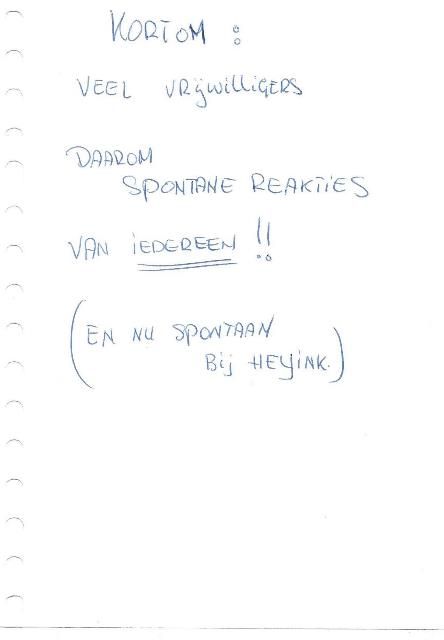 KORTOM :
VEEL VRIJWILLIGERS
DAAROM
SPONTANE REAKTIES
VAN IEDEREEN !!
(EN NU SPONTAAN
BIJ HEYINK.)